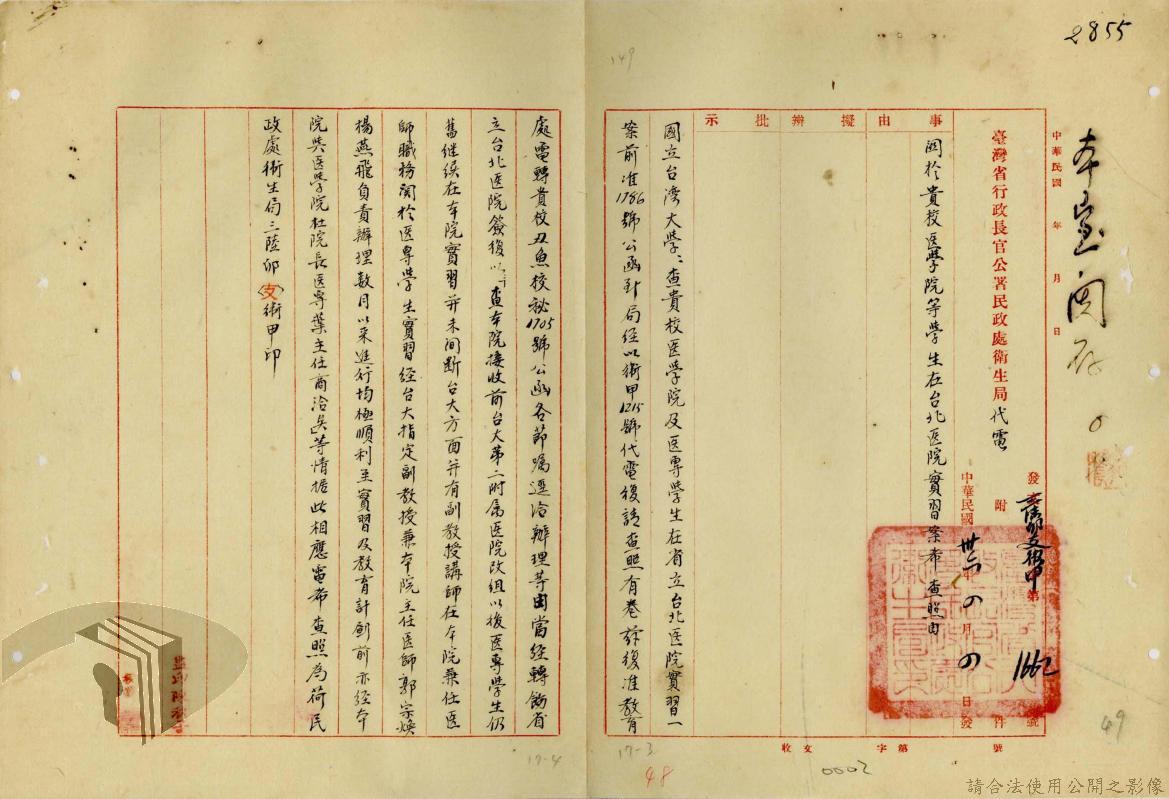 2855
149
中華民國 年 月 日
臺灣省行政長官公署民政處衛生局代電
發
附
中華民國卅年四月四日發
第1662號
件
事由擬辦批示
關於貴校医學院等學生在台北医院實習案希查照由
國立台湾大學：查貴校医學院及医專學生在省立台北医院實習一
案前准1786號公函到局經以衛甲1215號代電復請查照有卷茲復准教育
處電轉貴校丑魚校秘1705號公函各節囑逕洽辦理等由當經轉飭省
立台北医院簽復以「查本院接收前台大第二附属医院改組以後医專學生仍
舊继续在本院實習并未间断台大方面并有副教授講師在本院兼任医
師職務関於医專學生實習經台大指定副教授兼本院主任医師郭宗焕
楊燕飛負責辦理数月以来進行均極順利至實習及教育計劃前亦经本
院與医學院杜院長医專葉主任商洽矣等情据此相應電希查照為荷民
政處衛生局三陸卯(支)衛甲印
收文 字第 號
0002
17-3
48
17-4
49
請合法使用公開之影像